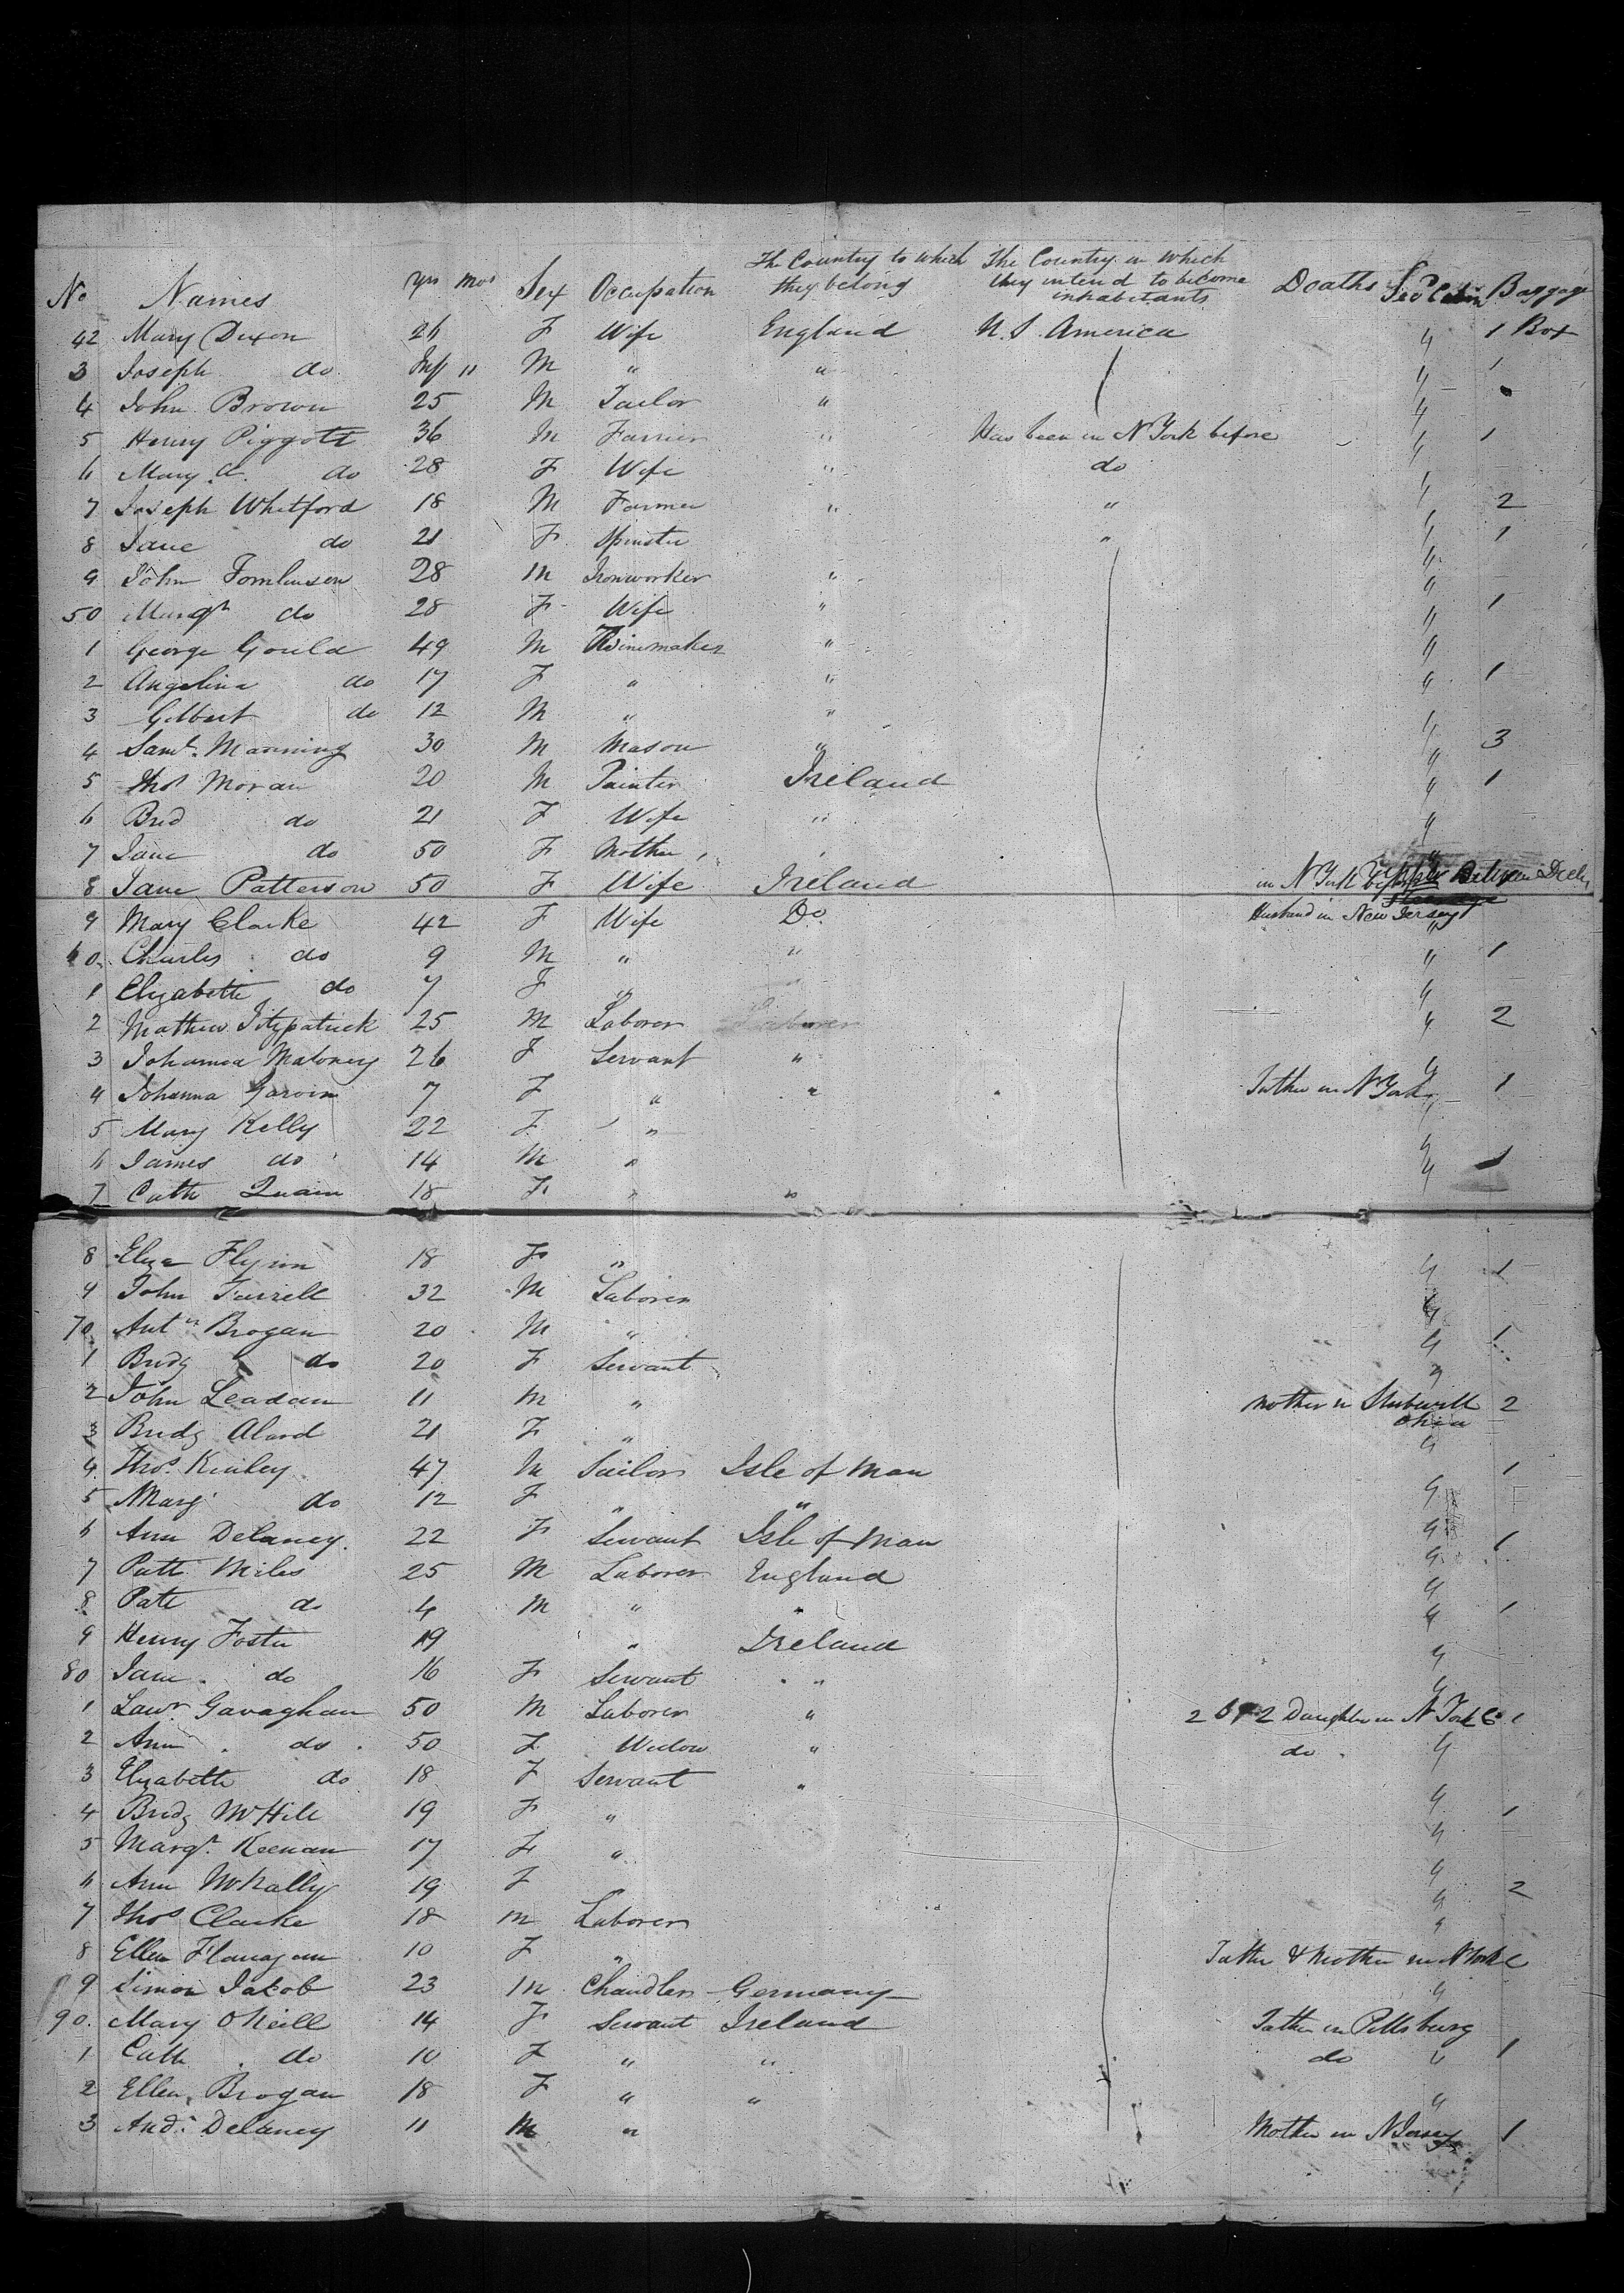 No Names yrs mos Sex Occupation The Country to which they belong The Country in which they intend to become inhabitants Deaths Baggage
42 Mary Dixon 26 F Wife England U.S. America " 1 Box
3 Joseph do Inf 11 M " " " 1
4 John Brown 25 M Tailor " "
5 Henry Piggott 36 M Farrier " Has been in N York before " 1
6 Mary A. do 28 F Wife " do "
7 Joseph Whitford 18 M Farmer " " " 2
8 Jane do 21 F Spinster " " 1
9 John Tomlinson 28 M Ironworker " "
50 Margt do 28 F Wife " " 1
1 George Gould 49 M Twinemaker " "
2 Angelina do 17 F " " " 1
3 Gilbert do 12 M " "
4 Saml. Manning 30 M Mason " " 3
5 Thos Moran 20 M Painter Ireland " 1
6 Brid do 21 F Wife " "
7 Jane do 50 F Mother " "
8 Jane Patterson 50 F Wife Ireland in N York Between Decks
9 Mary Clarke 42 F Wife Do. Husband in New Jersey "
60 Charles do 9 M " " " 1
1 Elizabeth do 7 F " " "
2 Mathew Fitzpatrick 25 M Laborer " 2
3 Johanna Maloney 26 F Servant " "
4 Johanna Garvin 7 F " " Father in N York " 1
5 Mary Kelly 22 F " "
6 James do 14 M " " 1
7 Cath Quain 18 F " "
8 Eliza Flynn 18 F " " 1
9 John Farrell 32 M Laborer "
70 Anty Brogan 20 M " " 1
1 Bridg do 20 F Servant "
2 John Leadam 11 M " Mother in Ohio 2
3 Bridg Alard 21 F " "
4 Thos. Kinley 47 M Sailor Isle of Man 1
5 Marg do 12 F " " "
6 Ann Delaney. 22 F Servant Isle of Man " 1
7 Patk Miles 25 M Laborer England "
8 Patk do 4 M " " " 1
9 Henry Foster 19 " Ireland "
80 Jane do 16 F Servant " "
1 Lawr Gavaghan 50 M Laborer " 2 Daughters in N York 1
2 Ann do 50 F Widow " do "
3 Elizabeth do 18 F Servant " "
4 Bridg McHill 19 F " " 1
5 Margt. Keenan 17 F " "
6 Ann McNally 19 F " 2
7 Thos Clarke 18 M Laborer "
8 Ellen Flanagan 10 F " Father & Mother in N York
9 Simon Jacob 23 M Chandler Germany "
90. Mary ONeill 14 F Servant Ireland Father in Pittsburg
1 Cath do 10 F " " do " 1
2 Ellen Brogan 18 F " " "
3 And. Delaney 11 M " Mother in N Jersey 1